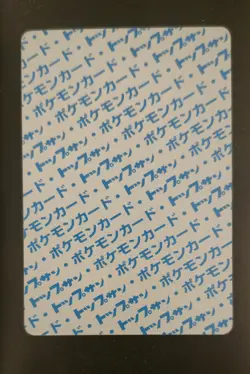 ・トップサン・
ポケモンカード・トップサン
ポケモンカード・トップサン・ポケモンカード
・トップサン・ポケモンカード・トップサン・
ポケモンカード・トップサン・ポケモンカード
・トップサン・ポケモンカード・トップサン・
ポケモンカード・トップサン・ポケモンカード
・トップサン・ポケモンカード・トップサン・
ポケモンカード・トップサン・ポケモンカード
・トップサン・ポケモンカード
・トップサン